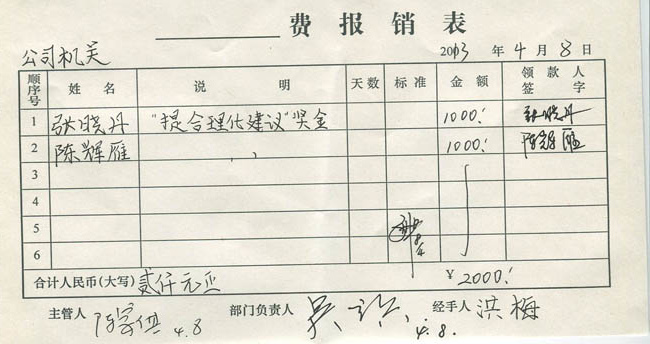 费报销表
公司机关 2013 年 4 月 8 日
顺序号 姓名 说明 天数 标准 金额 领款人签字
1 张晓丹 "提合理化建议"奖金 1000.' 张晓丹
2 陈辉雁 〃 1000.' 陈辉雁
3
4
5
6
合计人民币(大写) 贰仟元正 ¥ 2000.'
主管人 4.8 部门负责人 4.8. 经手人 洪梅